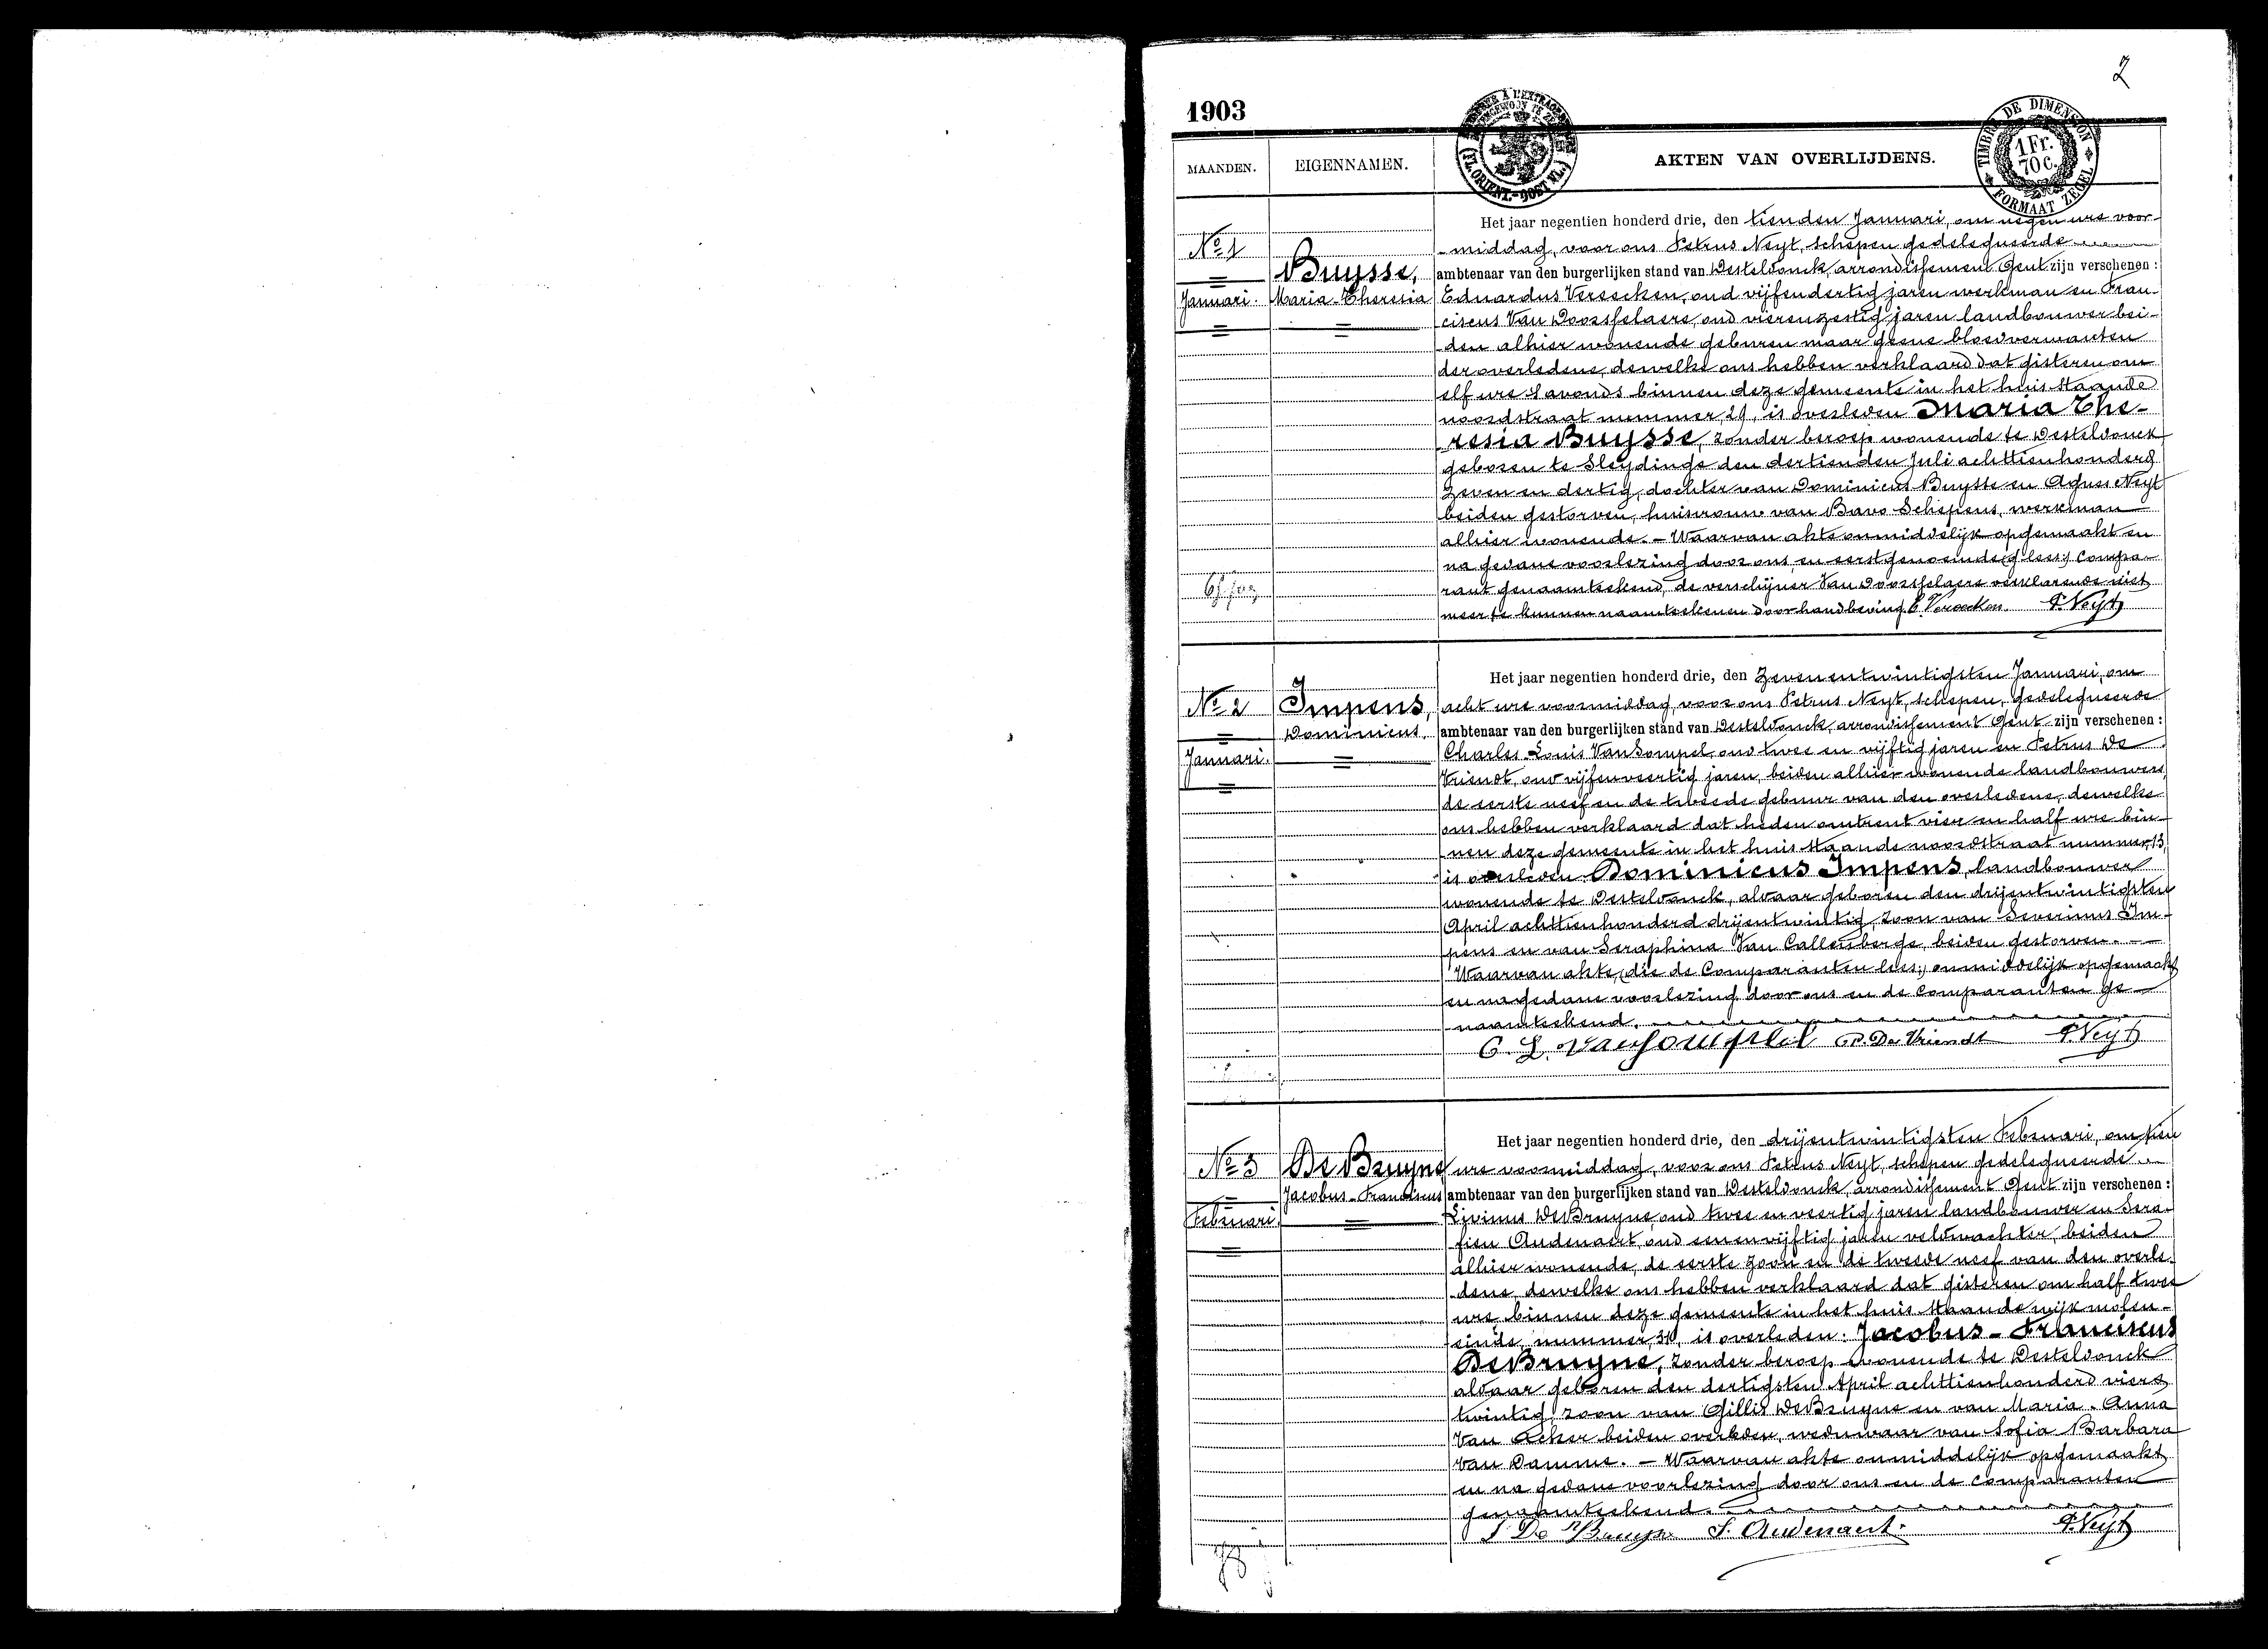 2
1903
MAANDEN.
EIGENNAMEN.
AKTEN VAN OVERLIJDENS.
(FL. ORIENT.-OOST VL.)
TIMBRE DE DIMENSION
1 Fr.
70 c.
FORMAAT ZEGEL
No 1
Januari.
Buysse,
Maria-Theresia
Het jaar negentien honderd drie, den tienden Januari, om negen ure voor-
middag, voor ons Petrus Neyt, schepen gedelegueerde
ambtenaar van den burgerlijken stand van Desteldonck, arrondissement Gent zijn verschenen :
Eduardus Vereecken, oud vijfendertig jaren werkman en Fran-
ciscus Van Doorsselaere, oud vierenzestig jaren landbouwer bei-
den alhier wonende geburen maar geene bloedverwanten
der overledene, dewelke ons hebben verklaard dat gisteren om
elf ure s'avonds binnen deze gemeente in het huis staande
noordstraat nummer, 21, is overleden Maria The-
resia Buysse, zonder beroep wonende te Desteldonck
geboren te Sleydinge den dertienden Juli achttienhonderd
zeven en dertig, dochter van Dominicus Buysse en Agnes Neyt
beiden gestorven, huisvrouw van Bavo Schepens, werkman
alhier wonende. - Waarvan akte onmiddelijk opgemaakt en
na gedane voorlezing door ons en eerstgenoemde (g lees:) compa-
rant genaamteekend, de verschijner Van Doorsselaere verklarende niet
meer te kunnen naamteekenen door handbeving E. Vereecken P. Neyt
No 2
Januari.
Impens,
Dominicus.
Het jaar negentien honderd drie, den Zevenentwintigsten Januari, om
acht ure voormiddag, voor ons Petrus Neyt, schepen, gedelegueerde
ambtenaar van den burgerlijken stand van Desteldonck, arrondissement Gent zijn verschenen :
Charles Louis Van Sompel, oud twee en vijftig jaren en Petrus De
Vriendt, oud vijfenveertig jaren, beiden alhier wonende landbouwers,
de eerste neef en de tweede gebuur van den overledene, dewelke
ons hebben verklaard dat heden omtrent vier en half ure bin-
nen deze gemeente in het huis staande noordstraat nummer, 13,
is overleden Dominicus Impens, landbouwer
wonende te Desteldonck, aldaar geboren den drijentwintigsten
April achttienhonderd drijentwintig, zoon van Severinus Im-
pens en van Seraphina Van Callenberge, beiden gestorven. -
Waarvan akte, (die de Comparanten lees:) onmiddelijk opgemaakt
en na gedane voorlezing door ons en de comparanten ge-
naamteekend.
C. L. van Sompel P. De Vriendt P. Neyt
No 3
Februari.
De Bruyne
Jacobus-Franciscus
Het jaar negentien honderd drie, den drijentwintigsten Februari, om tien
ure voormiddag, voor ons Petrus Neyt, schepen gedelegueerde
ambtenaar van den burgerlijken stand van Desteldonck, arrondissement Gent zijn verschenen :
Livinus De Bruyne, oud twee en veertig jaren landbouwer en Sera-
fien Audenaert, oud eenenvijftig jaren veldwachter, beiden
alhier wonende, de eerste zoon en de tweede neef van den overle-
dene, dewelke ons hebben verklaard dat gisteren om half twee
ure, binnen deze gemeente in het huis staande wijk molen-
einde, nummer, 30, is overleden: Jacobus-Franciscus
De Bruyne, zonder beroep wonende te Desteldonck
aldaar geboren den dertigsten April achttienhonderd viere
twintig, zoon van Gillis De Bruyne en van Maria-Anna
Van Acker beiden overleden, weduwaar van Sofia Barbara
Van Damme. - Waarvan akte onmiddelijk opgemaakt
en na gedane voorlezing door ons en de comparanten
genaamteekend.
L De Bruyne S. Audenaert. P. Neyt